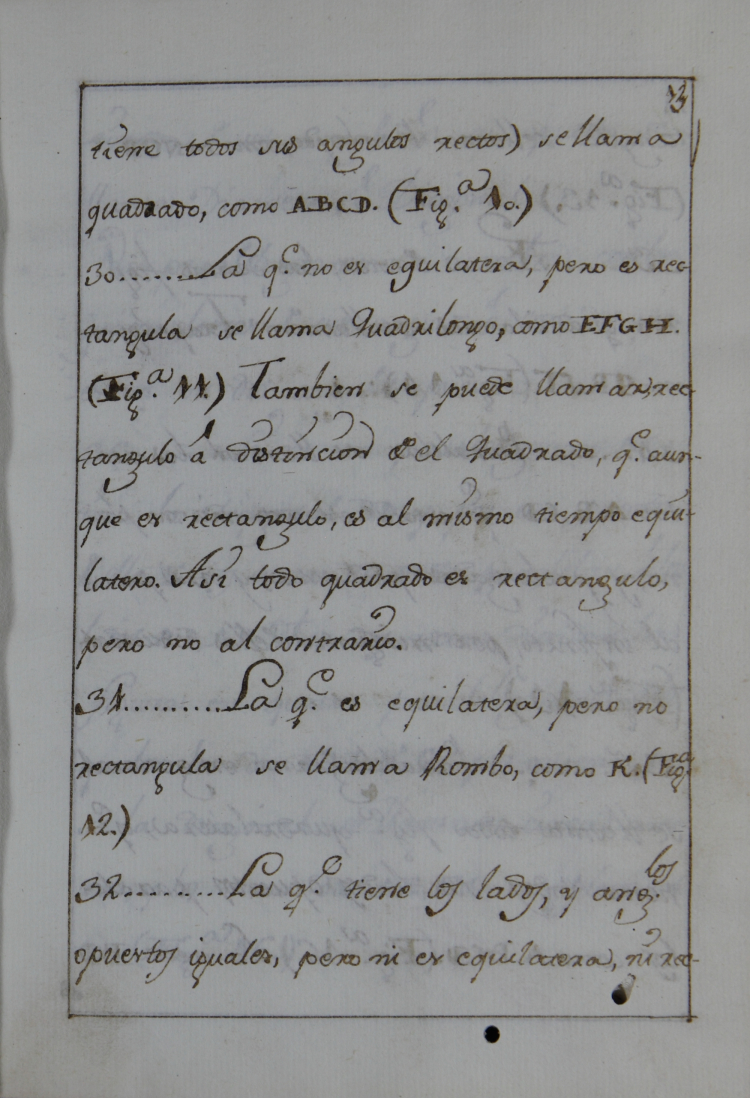 13
tiene todos sus angulos rectos) se llama
quadrado, como ABCD. (Fig.ª 10.)
30.......La q.e no es equilatera, pero es rec-
tangula se llama Quadrilongo, como EFGH.
(Fig.ª 11.) Tambien se puede llamar rec-
tangulo á distincion del Quadrado, q.e aun-
que es rectangulo, es al mismo tiempo equi-
latero. Asi todo quadrado es rectangulo,
pero no al contrario.
31..........La q.e es equilatera, pero no
rectangula se llama Rombo, como K. (Fig.ª
12.)
32..........La q.e tiene los lados, y ang.los
opuestos iguales, pero ni es equilatera, ni rec-